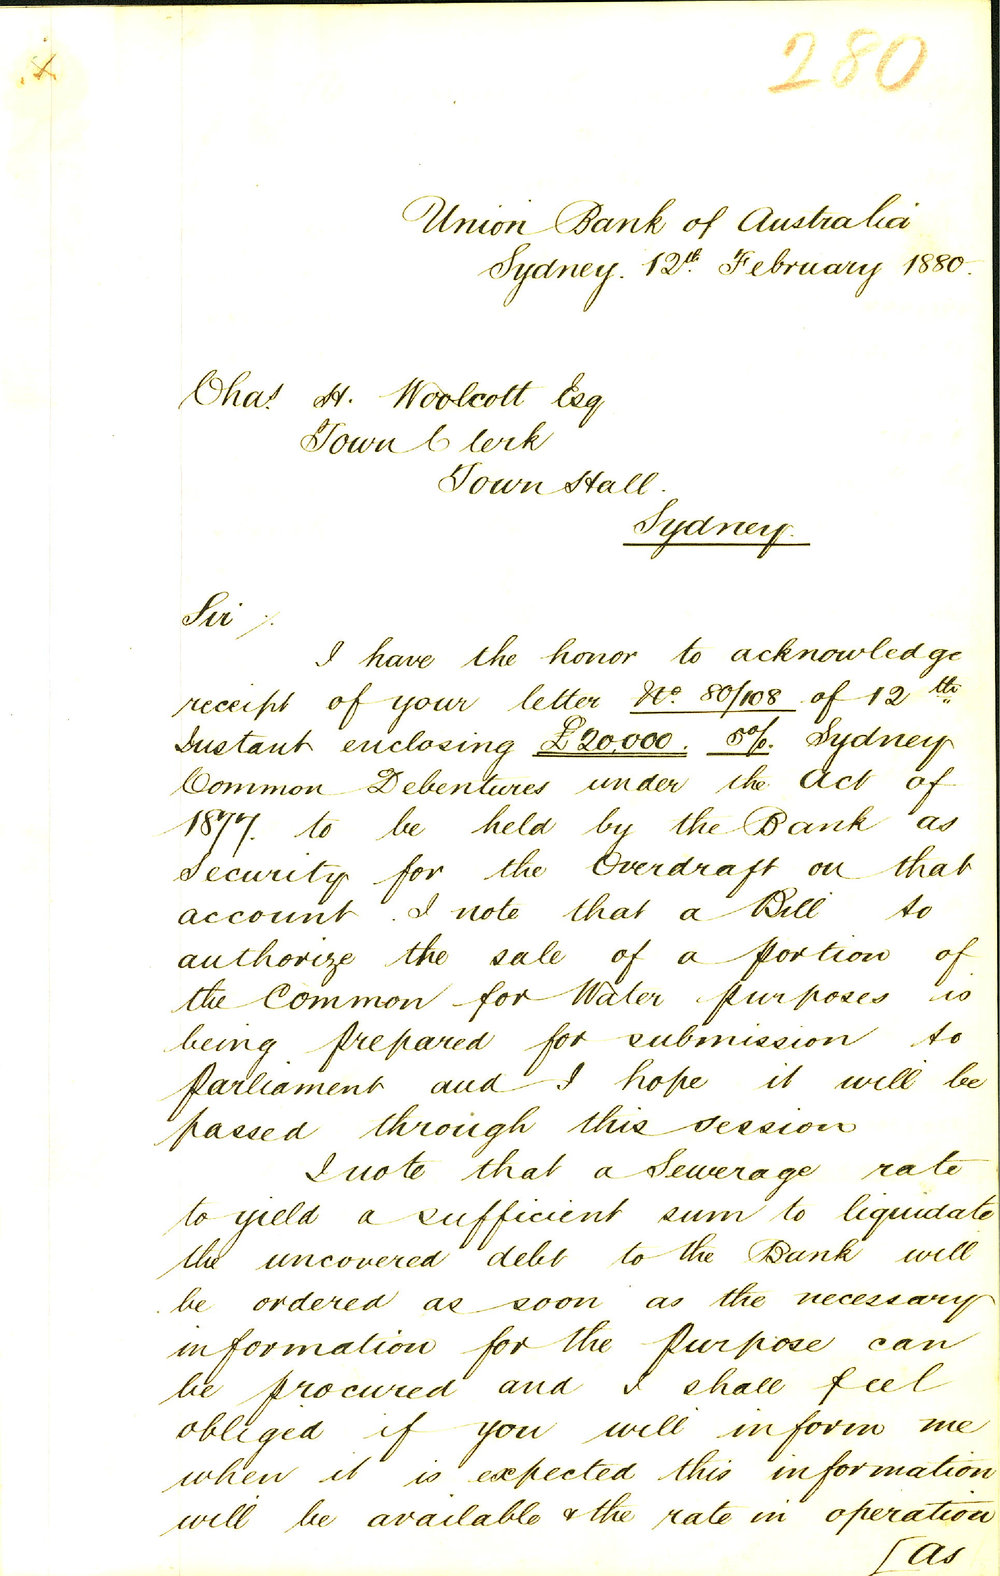 280
Union Bank of Australia
Sydney. 12th. February 1880.
Chas. H. Woolcott Esq
Town Clerk
Town Hall.
Sydney.
Sir /.
I have the honor to acknowledge
receipt of your letter No. 80/108 of 12th
Instant enclosing £20,000. 5%. Sydney
Common Debentures under the Act of
1877. to be held by the Bank as
Security for the Overdraft on that
account. I note that a Bill to
authorize the sale of a portion of
the Common for Water purposes is
being prepared for submission to
Parliament and I hope it will be
passed through this session
I note that a Sewerage rate
to yield a sufficient sum to liquidate
the uncovered debt to the Bank will
be ordered as soon as the necessary
information for the purpose can
be procured and I shall feel
obliged if you will inform me
when it is expected this information
will be available & the rate in operation
[As